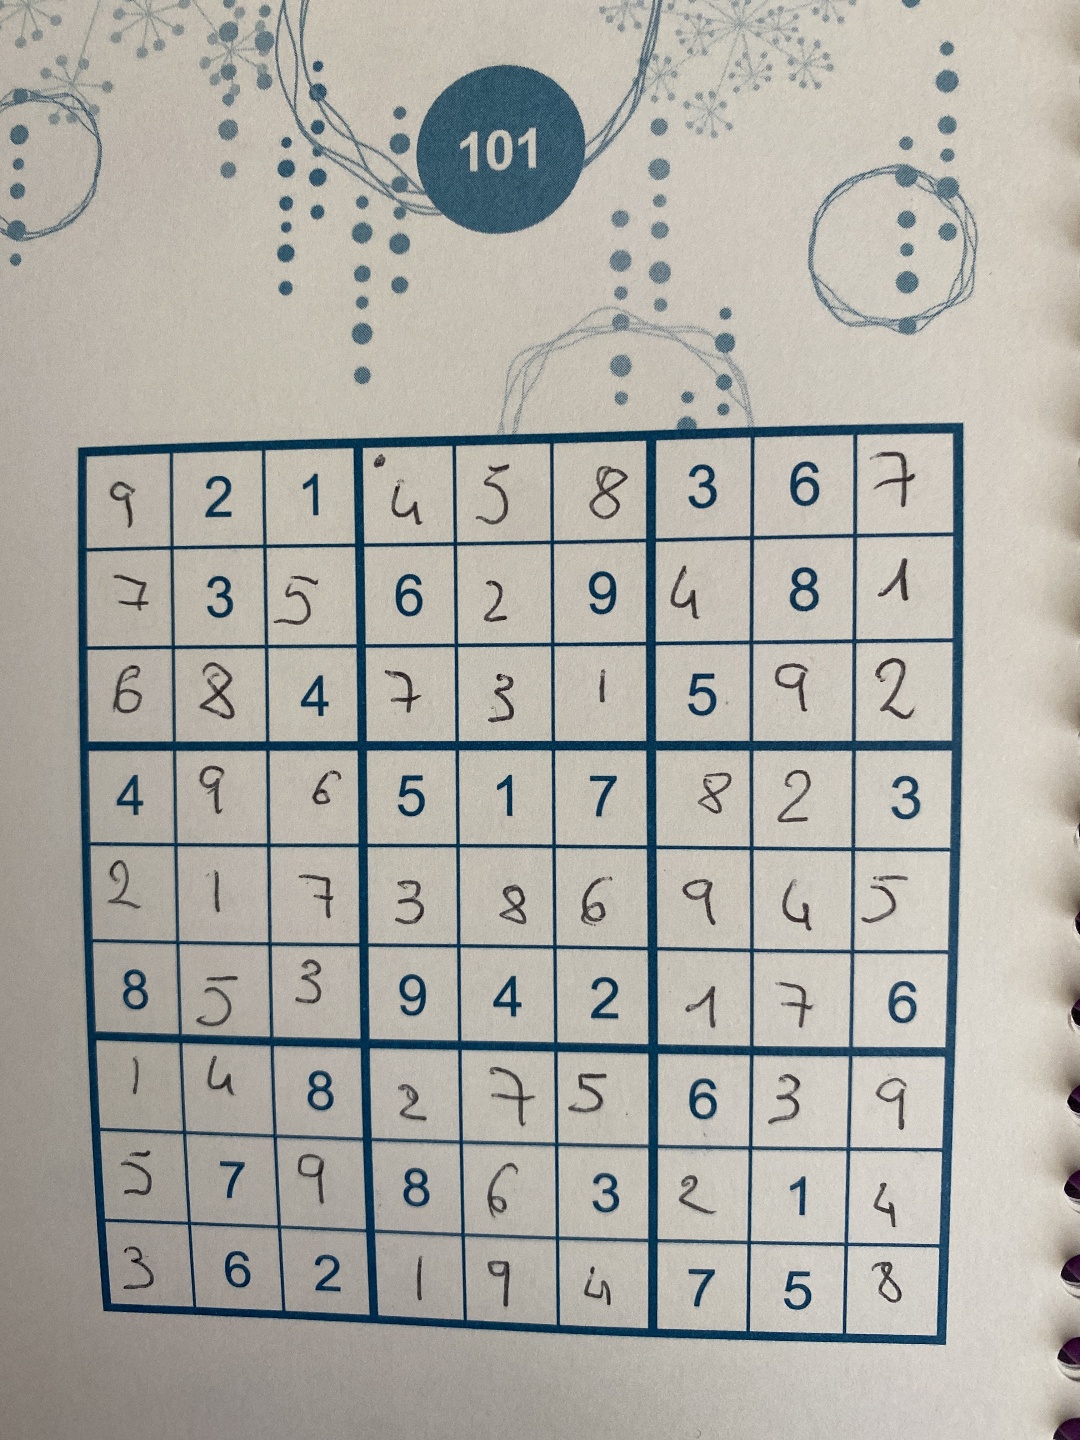 101
9 2 1 4 5 8 3 6 7
7 3 5 6 2 9 4 8 1
6 8 4 7 3 1 5 9 2
4 9 6 5 1 7 8 2 3
2 1 7 3 8 6 9 4 5
8 5 3 9 4 2 1 7 6
1 4 8 2 7 5 6 3 9
5 7 9 8 6 3 2 1 4
3 6 2 1 9 4 7 5 8